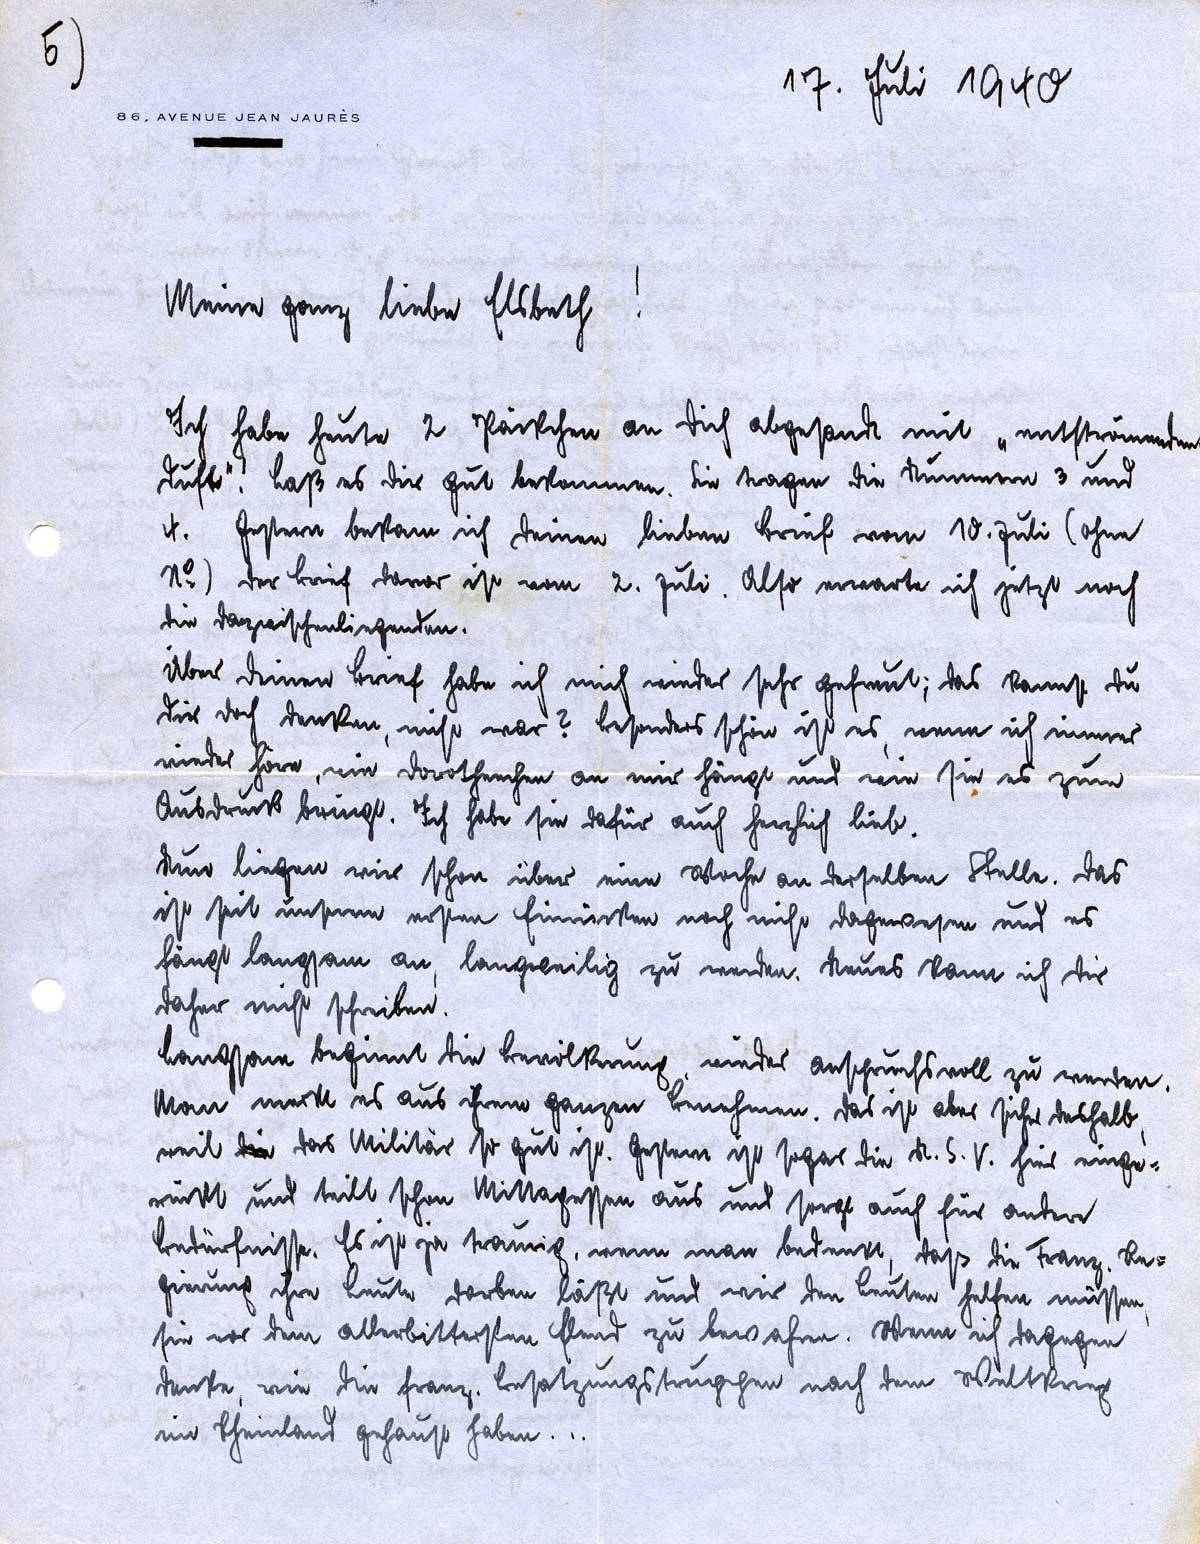 5)
17. Juli 1940
86, AVENUE JEAN JAURÈS
Meine ganz liebe Elsbeth !
Ich habe heute 2 Päckchen an Dich abgesandt mit „entströmenden
Duft“! Laß es dir gut bekommen. Sie tragen die Nummern 3 und
4. Gestern bekam ich Deinen lieben Brief vom 10. Juli (ohne
No) Der Brief davor ist vom 2. Juli. Also erwarte ich jetzt noch
die dazwischenliegenden.
Über Deinen Brief habe ich mich wieder sehr gefreut; das kannst Du
Dir doch denken, nicht war? Besonders schön ist es, wenn ich immer
wieder höre, wie Dorotheechen an mir hängt und wie sie es zum
Ausdruck bringt. Ich habe sie dafür auch herzlich lieb.
Nun liegen wir schon über eine Woche an derselben Stelle. Das
ist seit unserem ersten Einrücken noch nicht dagewesen und es
fängt langsam an, langweilig zu werden. Neues kann ich Dir
daher nicht schreiben.
Langsam beginnt die Bevölkerung, wieder anspruchsvoll zu werden.
Man merkt es aus ihrem ganzen Benehmen. Das ist aber sicher deshalb,
weil die das Militär so gut ist. Gestern ist sogar die N.S.V. hier einge=
rückt und teilt schon Mittagessen aus und sorgt auch für andere
Bedürfnisse. Es ist ja traurig, wenn man bedenkt, daß die Franz. Re=
gierung ihre Leute darben läßt und wir den Leuten helfen müssen,
sie vor dem allerbittersten Elend zu bewahren. Wenn ich dagegen
denke, wie die franz. Besatzungstruppen nach dem Weltkrieg
im Rheinland gehaust haben...